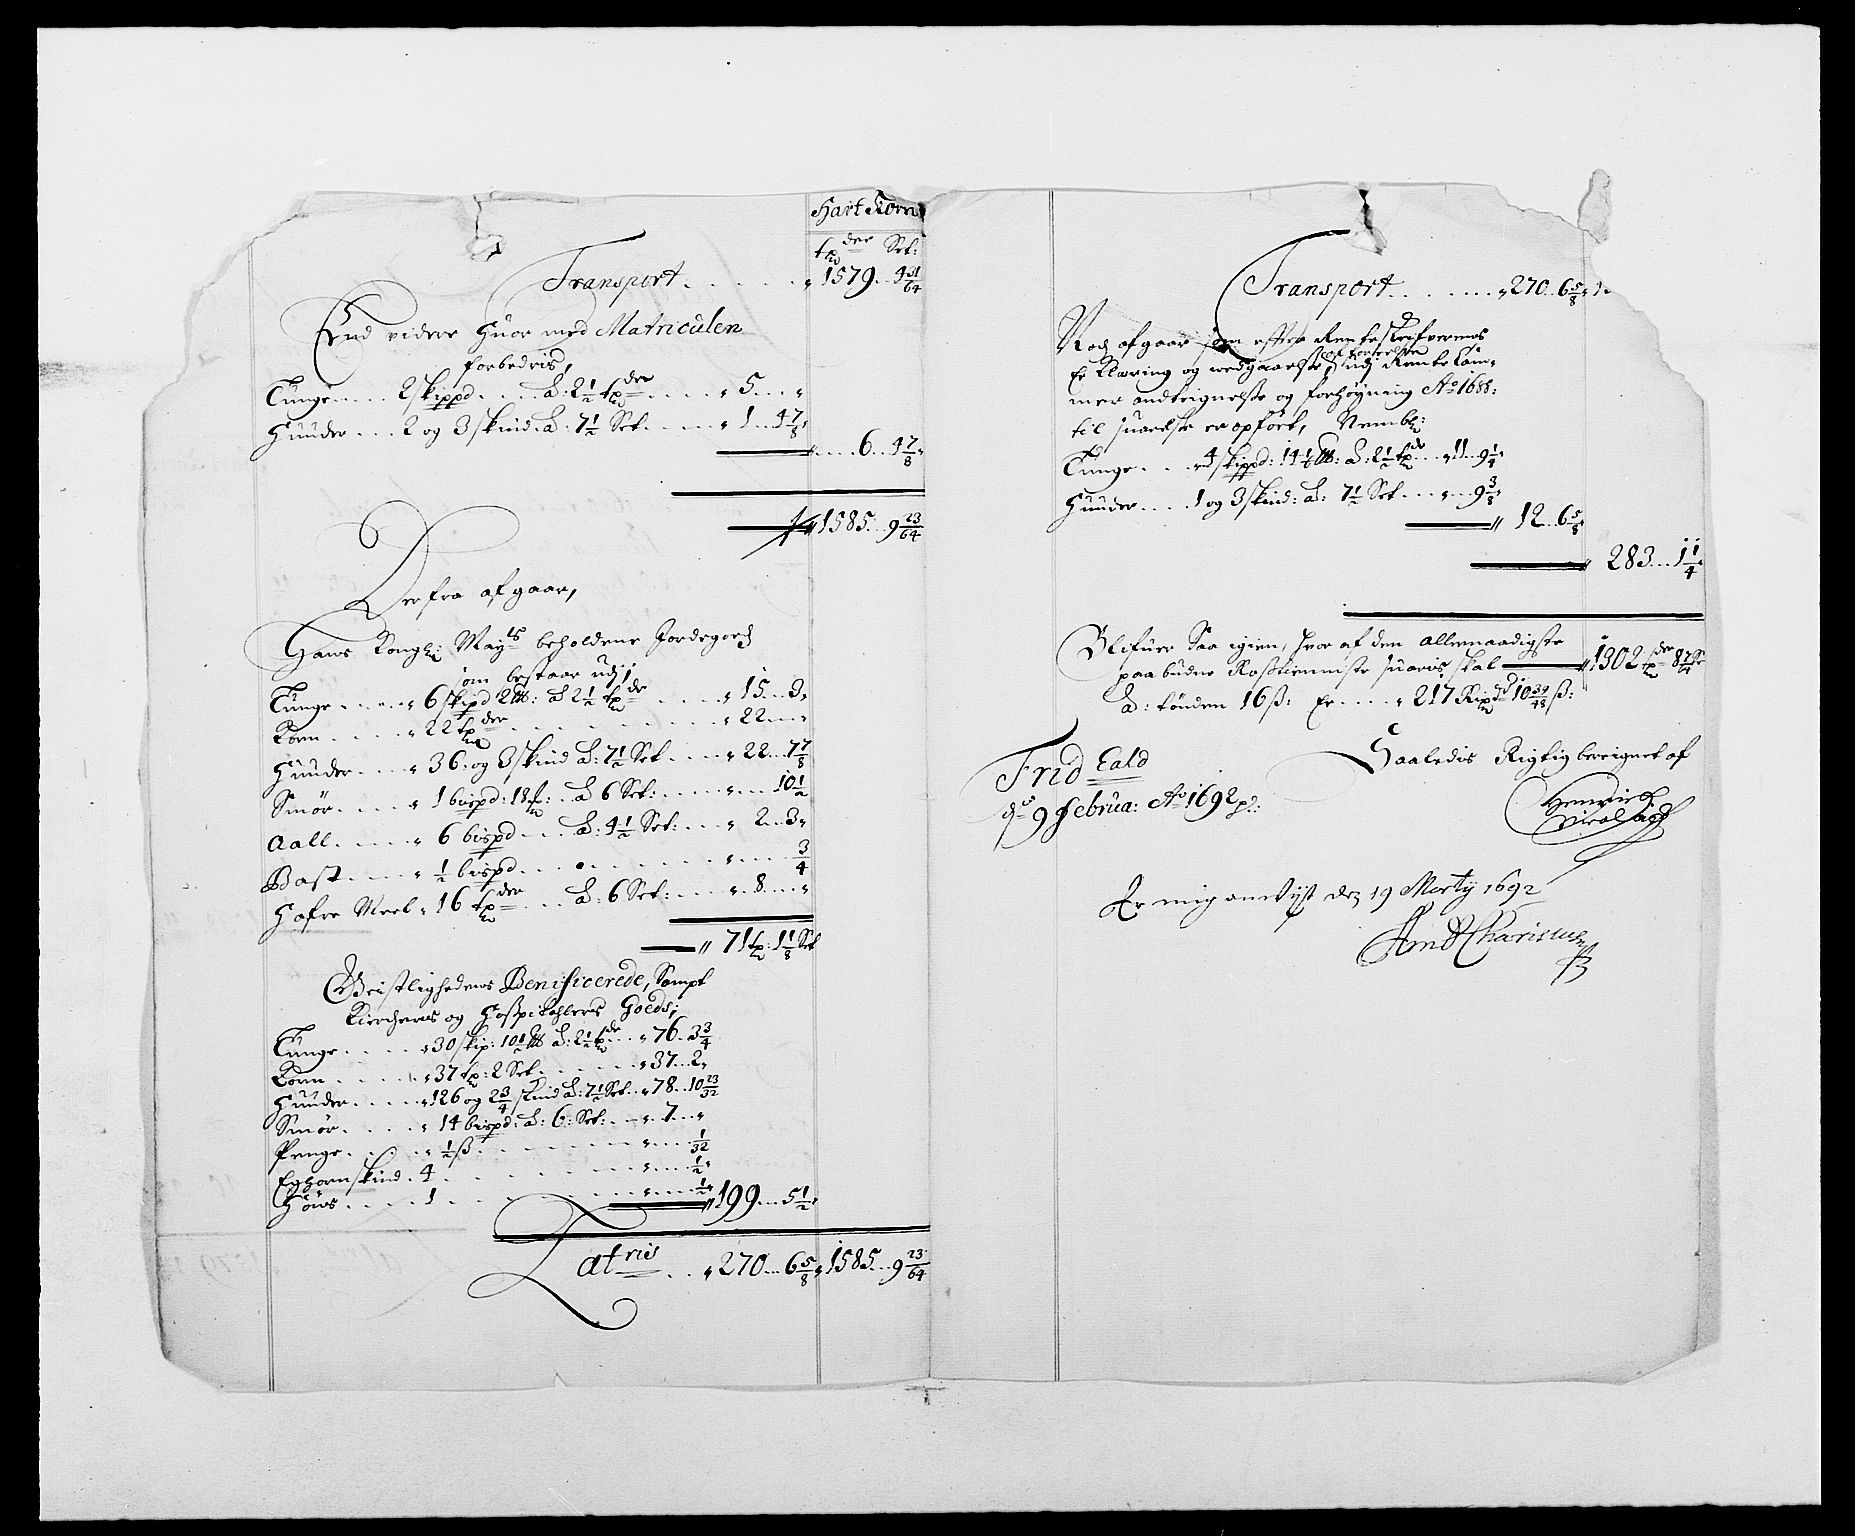 Hart Korn
tp der Set:
Transport . . . . . 1579 . . 4 31/64
End videre Huor med Matriculen
forbedris,
Tunge . . . . 2 skippd . . . . à: 2 1/2 tp der . . . . 5 . . .
Huuder . . . 2 og 3 skind. à 7 1/2 Set . . . . 1 . . 4 7/8
6 . . 4 7/8
1585 . . 9 23/64
Derfra afgaar,
Hans Kongl: May ts beholdene Jordegods
som bestaar udj;
Tunge . . . . 6 skipd 2 lb: à 2 1/2 tp de . . . . 15 . . 3
Korn . . . . 22 tp der . . . . 22 . . .
Huuder . . . . 36. og 3 skind à 7 1/2 Set . . . . 22 . . 7 7/8
Smør . . . . 1 bispd: 18 . . à 6 Set: . . . . 10 1/2
Aall . . . . 6 bispd . . . à: 4 1/2 Set: . . . . 2 . . 3
Bast . . . . 1/2 bispd . . . . 3/4
Hafre Meel 16 tp der . . . à: 6 Set: . . . . 8 . . .
71 tp: 1 1/8 Set
Geistlighedens Benificerede, Sampt
Kierchens og Hoßpitahlers Goeds;
Tunge . . . . 30 skip: 10 1/2 lb à: 2 1/2 tp de . . 76 . . 3 3/4
Korn . . . . 37 tp: 2 Set . . . . 37 . . 2
Huuder . . . . 126 og 2 3/4 skind à: 7 1/2 Set . . 78 . . 10 23/32
Smør . . . . 14 bispd: à: 6: Set: . . . 7 . . .
Penge . . . . 1/2 ß . . . . 1/32
Eghornskind . 4 . . . . 1/2
Høns . . . . 1 . . . . 1/2
199 . . 5 1/2
Latris . . 270 . . 6 5/8 1585 . . 9 23/64
Transport . . . . . 270 . . 6 5/8
Noch afgaar som efter Renteskrifverens
Erklæring og wedgaaelse udj Rente Kam-
mer andtegnelse og forhøyning Ao 1688:
til suarelse er opført, Nembl:
Tunge . . . 4 skippd: 14 1/6 lb: à: 2 1/2 tp de . . 11 . . 9 1/4
Huuder . . . . 1 og 3 skind: à: 7 1/2 Set . . . . 9 3/8
12 . . 6 5/8
283 . . 1 1/4
Blifuer Saa igien, hvor af den allernaadigste
paabudne Roßtienniste suaris skal 1302 tp der 8 Set
à: tønden 16 ß: Er . . . . 217 Rixd 10 39/48 ß:
Frid Eald
9 Februa: Ao 1692
Saaledis Rigtig bereignet af
Hendrich
Er mig anvijst den 19 Marty 1692